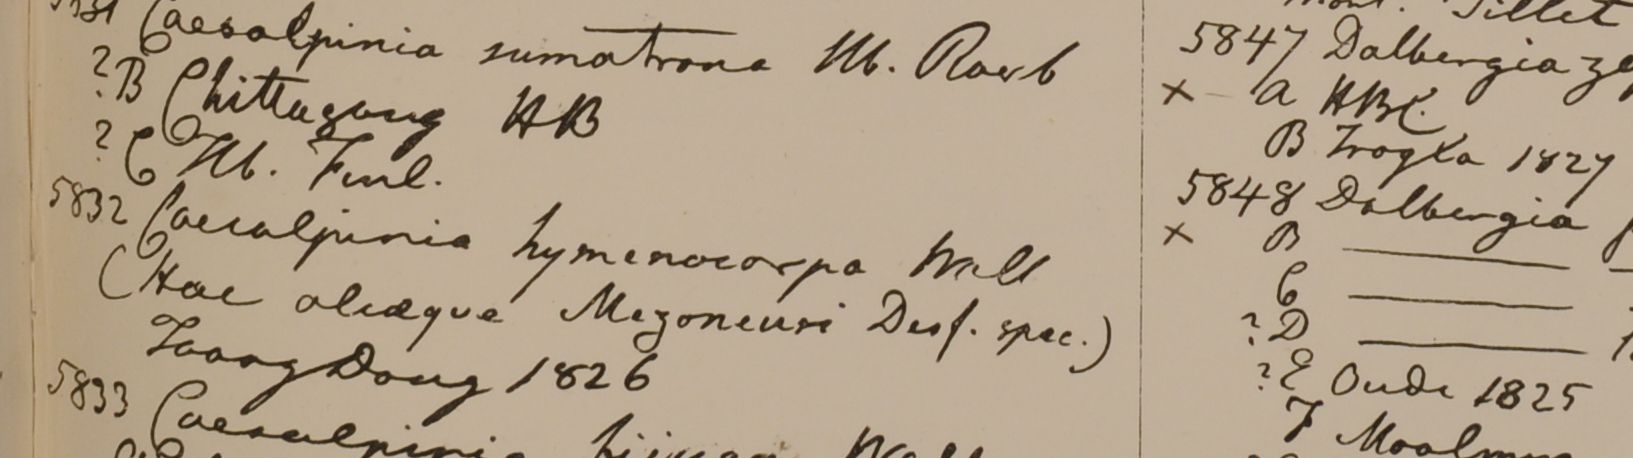 5831 Caesalpinia sumatrana Hb. Roxb
? B Chittagong HB
? C Hb. Finl.
5832 Caesalpinia hymenocarpa Wall
(Hae aliaeque Mezoneuri Desf. spec.)
Taong Dong 1826
5833 Caesalpinia Wall
Mont. Sillet
5847 Dalbergia
x a HBC.
B Trogla 1827
5848 Dalbergia
x B
C
? D
? E Oude 1825
F